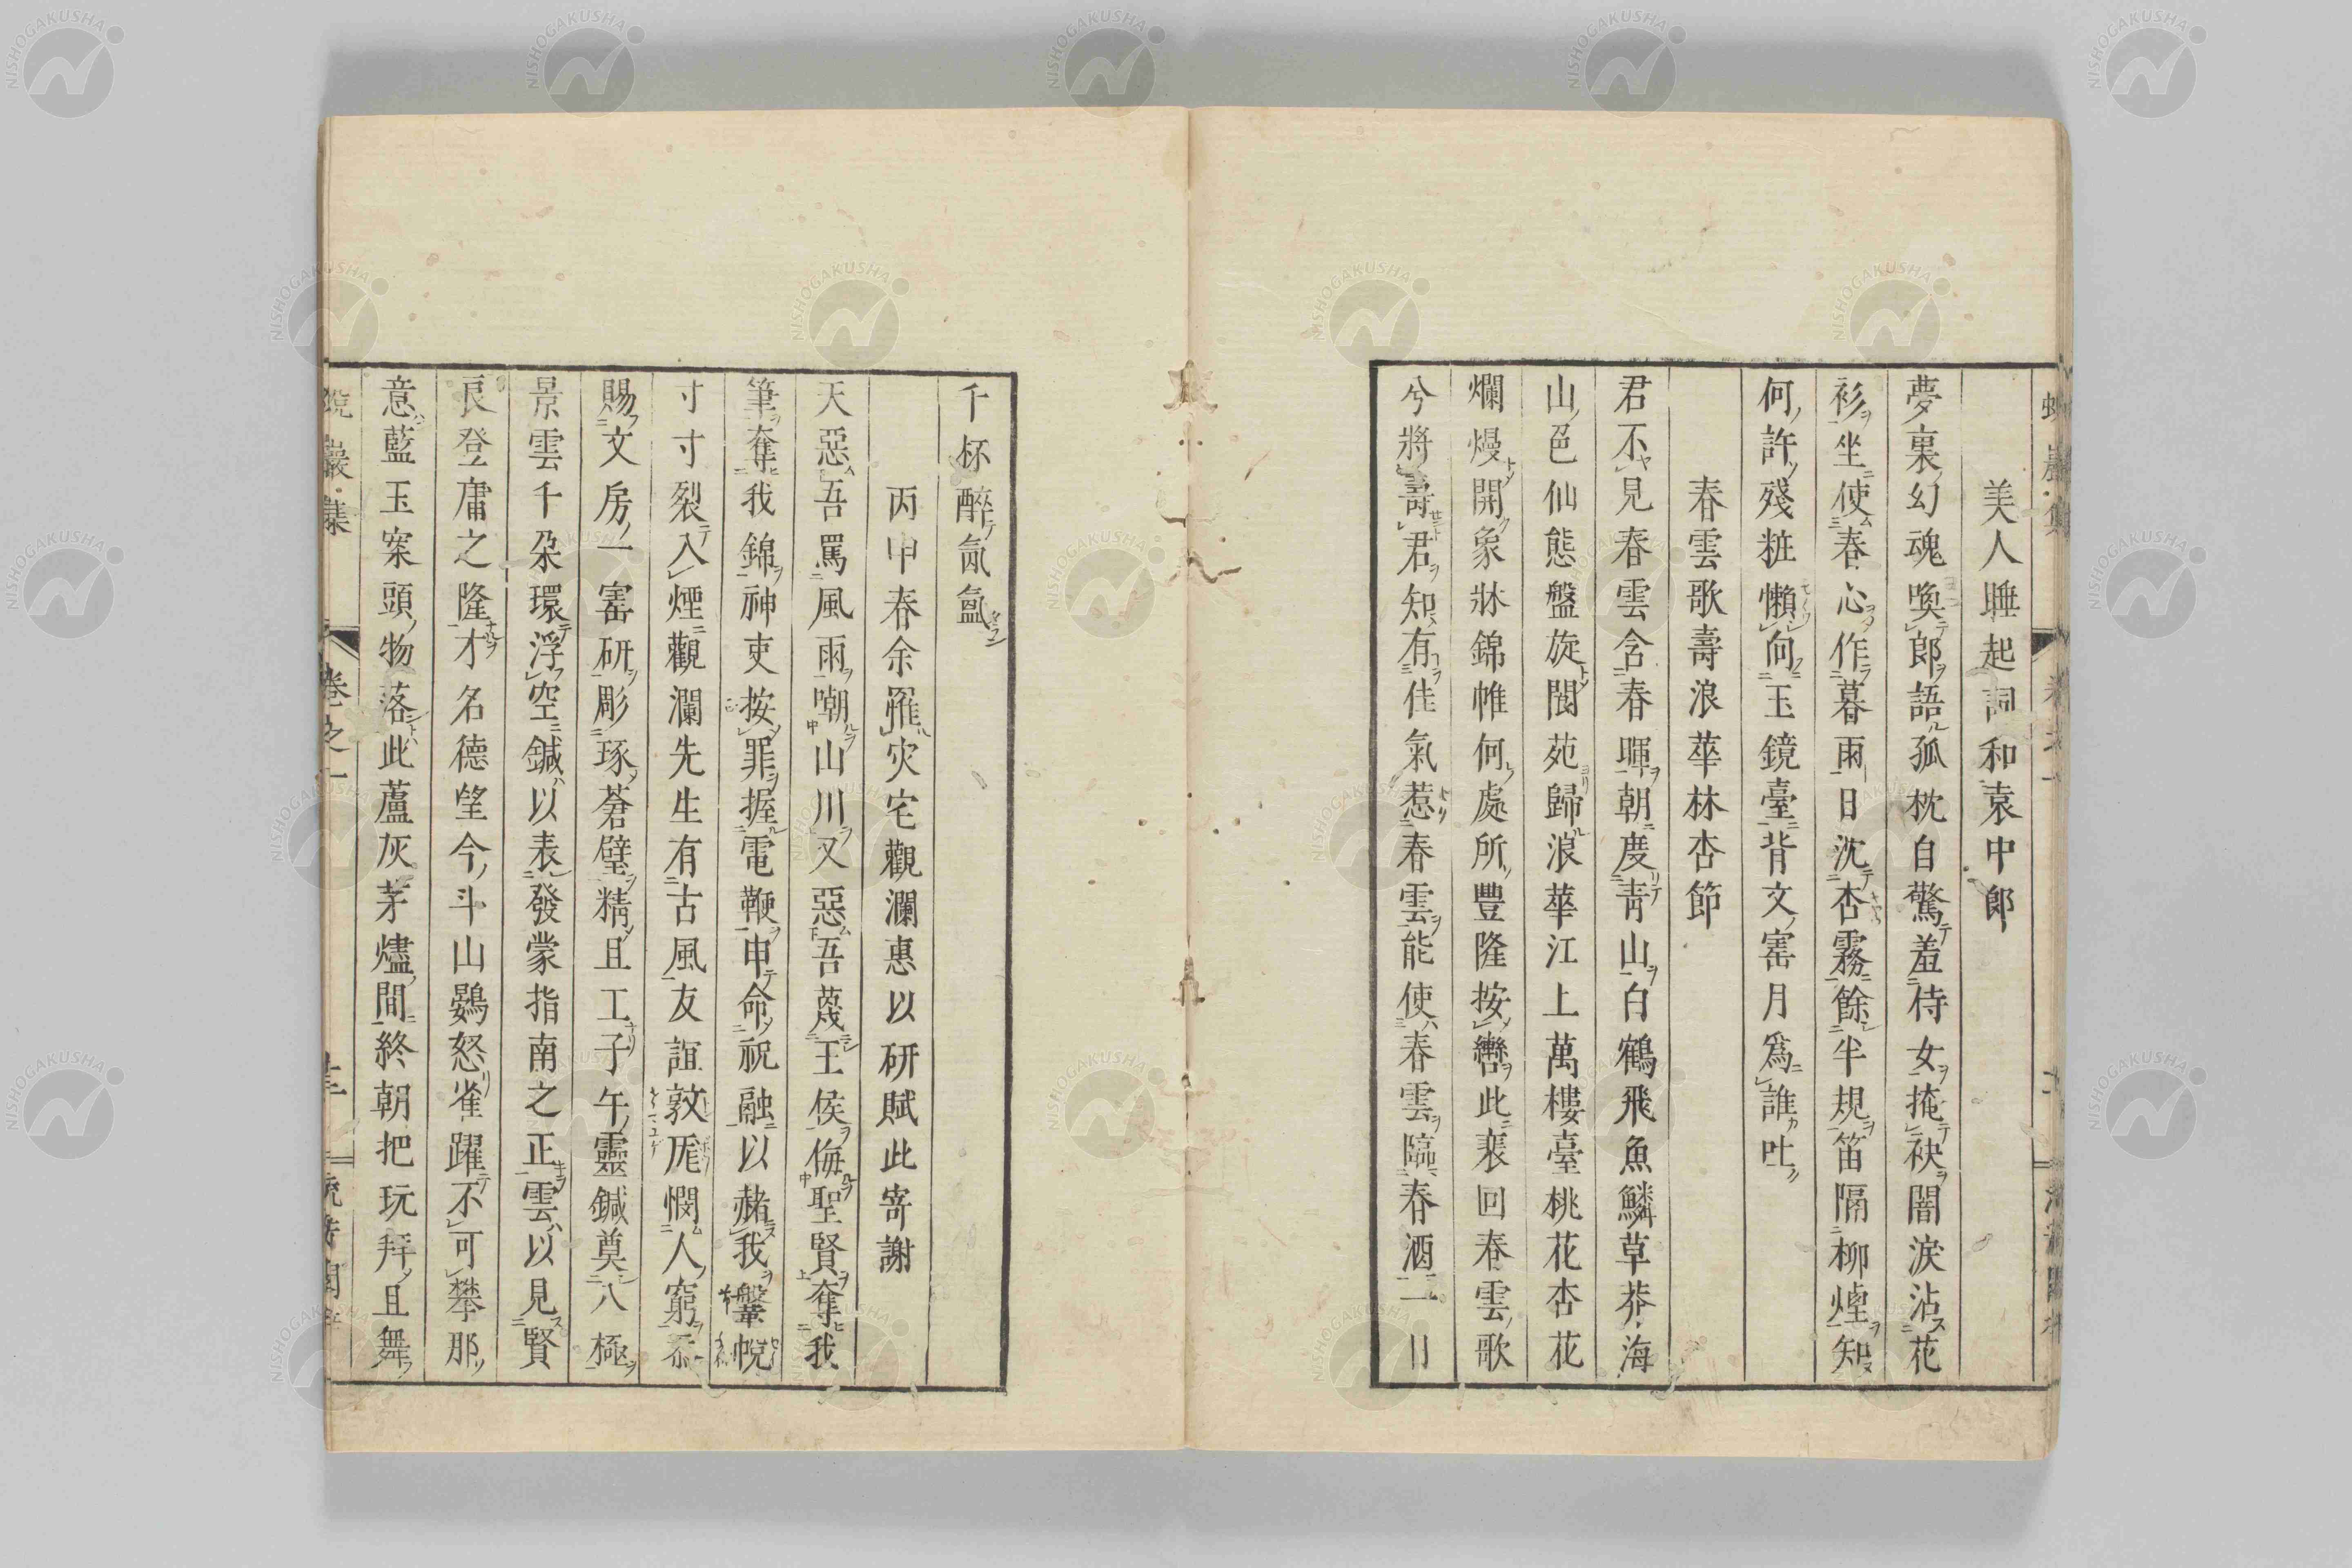 美人睡起詞和袁中郎
夢裏幻魂喚郎語孤枕自驚羞侍女掩袂闇淚沾花
衫坐使春心作暮雨日沈杏霧餘半規笛隔柳煙知
何許殘粧懶向玉鏡臺背文窓月爲誰吐
春雲歌壽浪華林杏節
君不見春雲含春暉朝度靑山白鶴飛魚鱗草莽海
山色仙態盤旋閬苑歸浪華江上萬樓臺桃花杏花
爛熳開象牀錦帷何處所豐隆按轡此裵回春雲歌
兮將壽君知有佳氣惹春雲能使春雲臨春酒一日
千杯醉氤氳
丙申春余罹灾宅觀瀾惠以研賦此寄謝
天惡吾罵風雨嘲山川又惡吾蔑王侯侮聖賢奪我
筆奪我錦神吏按罪握電鞭申命祝融以赭我鞶帨
寸寸裂入煙觀瀾先生有古風友誼敦厖憫人窮忝
賜文房一窓研彫琢蒼璧精且工子午靈鍼奠八極
景雲千朶環浮空鍼以表發蒙指南之正雲以見賢
良登庸之隆才名德望今斗山鷃怒雀躍不可攀那
意藍玉案頭物落此蘆灰茅燼間終朝把玩拜且舞
蛻巖集
卷之一
NISHOGAKUSHA